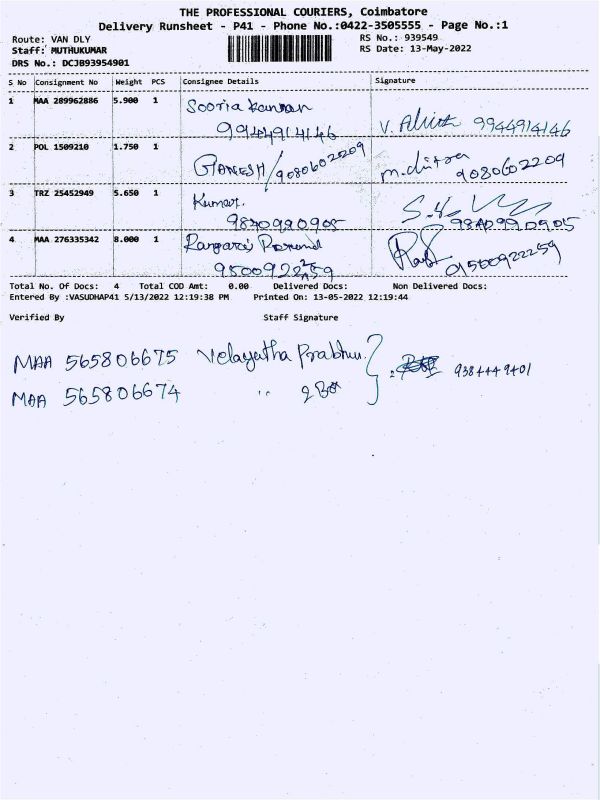 THE PROFESSIONAL COURIERS, Coimbatore
Delivery Runsheet - P41 - Phone No.:0422-3505555 - Page No.:1
Route: VAN DLY RS No.: 939549
Staff: MUTHUKUMAR RS Date: 13-May-2022
DRS No.: DCJB93954901
S No Consignment No Weight PCS Consignee Details Signature
1 MAA 289962886 5.900 1 Sooria Kannan
9944914146 V. 9944914146
2 POL 1509210 1.750 1 GANESH/9080602209 m.chitra
9080602209
3 TRZ 25452949 5.650 1 Kumar.
9840990905 9840990905
4 MAA 276335342 8.000 1
9500922259 09500922259
Total No. Of Docs: 4 Total COD Amt: 0.00 Delivered Docs: Non Delivered Docs:
Entered By :VASUDHAP41 5/13/2022 12:19:38 PM Printed On: 13-05-2022 12:19:44
Verified By Staff Signature
MAA 565806675 Velayutha Prabhu.
MAA 565806674 " 2 Box
9384449401